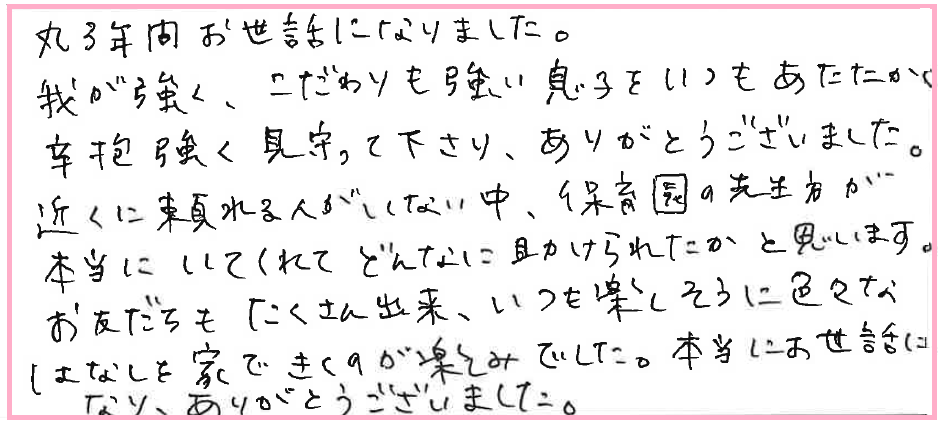 丸3年間お世話になりました。
我が強く、こだわりも強い息子をいつもあたたかく
辛抱強く見守って下さり、ありがとうございました。
近くに頼れる人がいない中、保育園の先生方が
本当にいてくれてどんなに助けられたかと思います。
お友だちもたくさん出来、いつも楽しそうに色々な
はなしを家できくのが楽しみでした。本当にお世話に
なり、ありがとうございました。